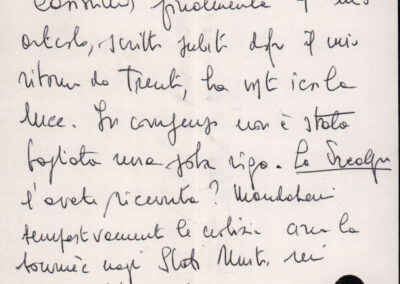 finalmente il mio
articolo, scritto subito dopo il mio
ritorno da Trento, ha visto ieri la
luce. In compenso non è stata
tagliata una sola riga. La
l'avete ricevuta? Mandatemi
tempestivamente le notizie circa la
tournée negli Stati Uniti, sei